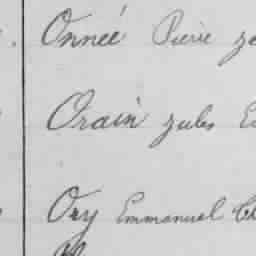 Onneé Pierre
Orain jules
Ory Emmanuel